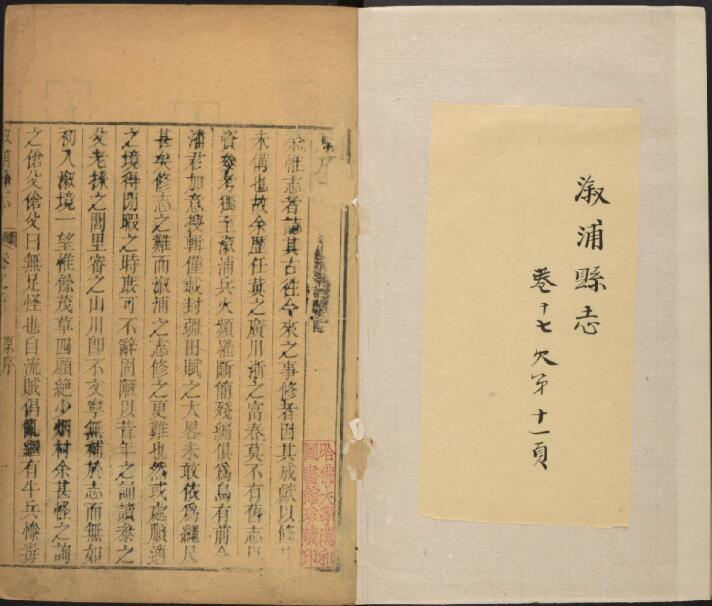 溆浦縣志
卷十七欠第十一頁
哈佛大學漢和
圖書館珍藏印
原序
余惟志者誌其古往今來之事修者因其成獻以修
未備也故余歷任冀之廣川浙之富春莫不有舊志
資參考獨至溆浦兵火頻罹斷簡殘編俱為烏有前令
潘君加意搜輯僅載封疆田賦之大畧未敢依為繩尺
甚矣修志之難而溆浦之志修之更難也然或處順適
之境得閒暇之時庶可不辭固陋以昔年之誦讀叅之
父老採之閭里審之山川卽不文寧無補於志而無如
初入溆境一望惟餘茂草四顧絕少烟村余甚怪之詢
之傖父傖父曰無足怪也自流賊倡亂繼有牛兵慘毒
溆浦縣志
原序